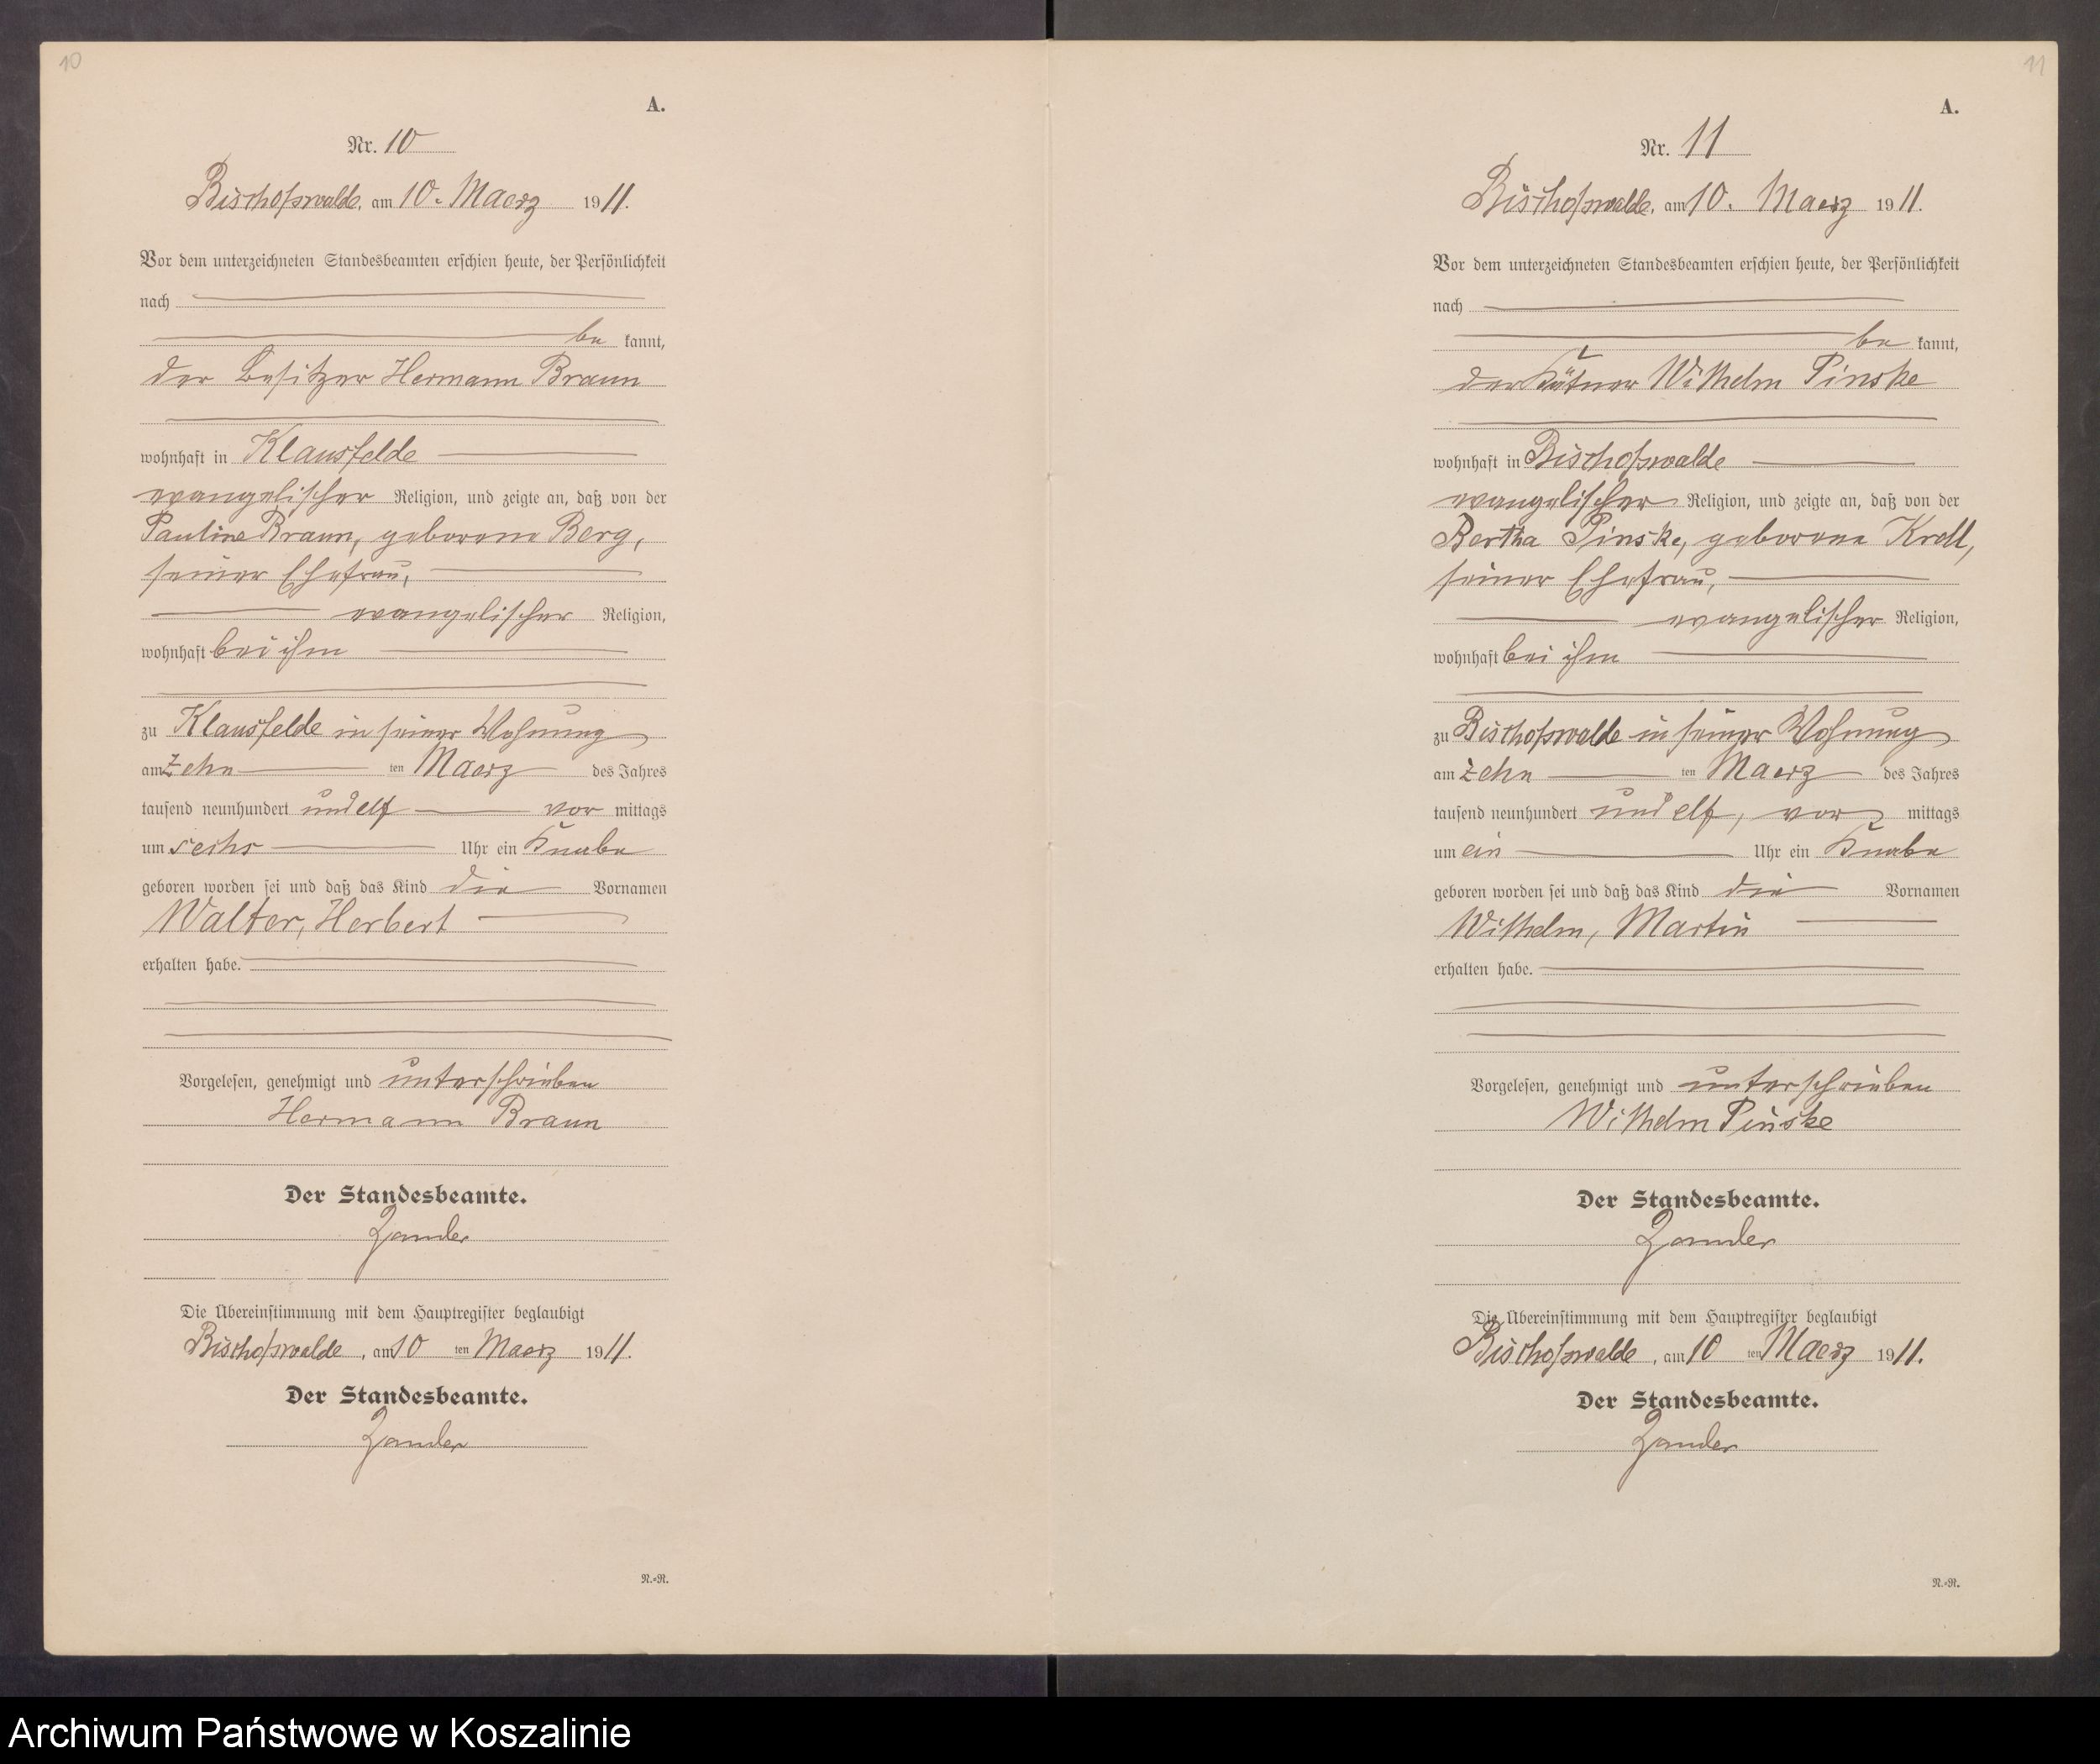 10
A.
Nr. 10
Bischofswalde, am 10. Maerz 1911.
Vor dem unterzeichneten Standesbeamten erschien heute, der Persönlichkeit
nach
be kannt,
der Besitzer Hermann Braun
wohnhaft in Klausfelde
evangelischer Religion, und zeigte an, daß von der
Pauline Braun, geborene Berg,
seiner Ehefrau,
evangelischer Religion,
wohnhaft bei ihm
zu Klausfelde in seiner Wohnung
am zehn ten Maerz des Jahres
tausend neunhundert und elf vor mittags
um sechs Uhr ein Knabe
geboren worden sei und daß das Kind die Vornamen
Walter, Herbert
erhalten habe.
Vorgelesen, genehmigt und unterschrieben
Hermann Braun
Der Standesbeamte.
Zander
Die Übereinstimmung mit dem Hauptregister beglaubigt
Bischofswalde, am 10 ten Maerz 1911.
Der Standesbeamte.
Zander
N.=R.
11
A.
Nr. 11
Bischofswalde, am 10. Maerz 1911.
Vor dem unterzeichneten Standesbeamten erschien heute, der Persönlichkeit
nach
be kannt,
der Kätner Wilhelm Pinske
wohnhaft in Bischofswalde
evangelischer Religion, und zeigte an, daß von der
Bertha Pinske, geborene Kroll,
seiner Ehefrau,
evangelischer Religion,
wohnhaft bei ihm
zu Bischofswalde in seiner Wohnung
am zehn ten Maerz des Jahres
tausend neunhundert und elf, vor mittags
um ein Uhr ein Knabe
geboren worden sei und daß das Kind die Vornamen
Wilhelm, Martin
erhalten habe.
Vorgelesen, genehmigt und unterschrieben
Wilhelm Pinske
Der Standesbeamte.
Zander
Die Übereinstimmung mit dem Hauptregister beglaubigt
Bischofswalde, am 10 ten Maerz 1911.
Der Standesbeamte.
Zander
N.=R.
Archiwum Państwowe w Koszalinie